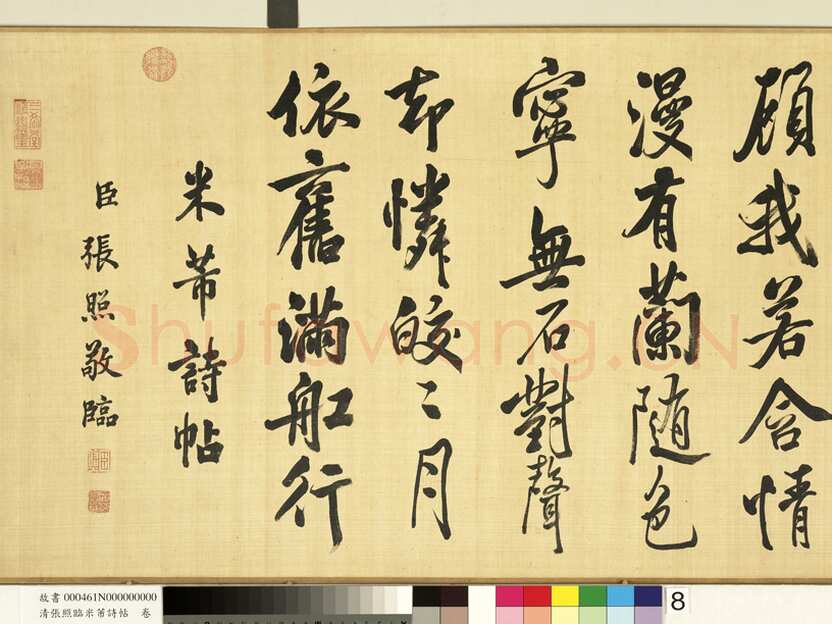 顧我若含情
漫有蘭随色
寧無石對聲
却憐皎〻月
依舊滿舡行
米芾詩帖
臣張照敬臨
Shufawang.CN
故書 000461N000000000
清張照臨米芾詩帖 卷
8